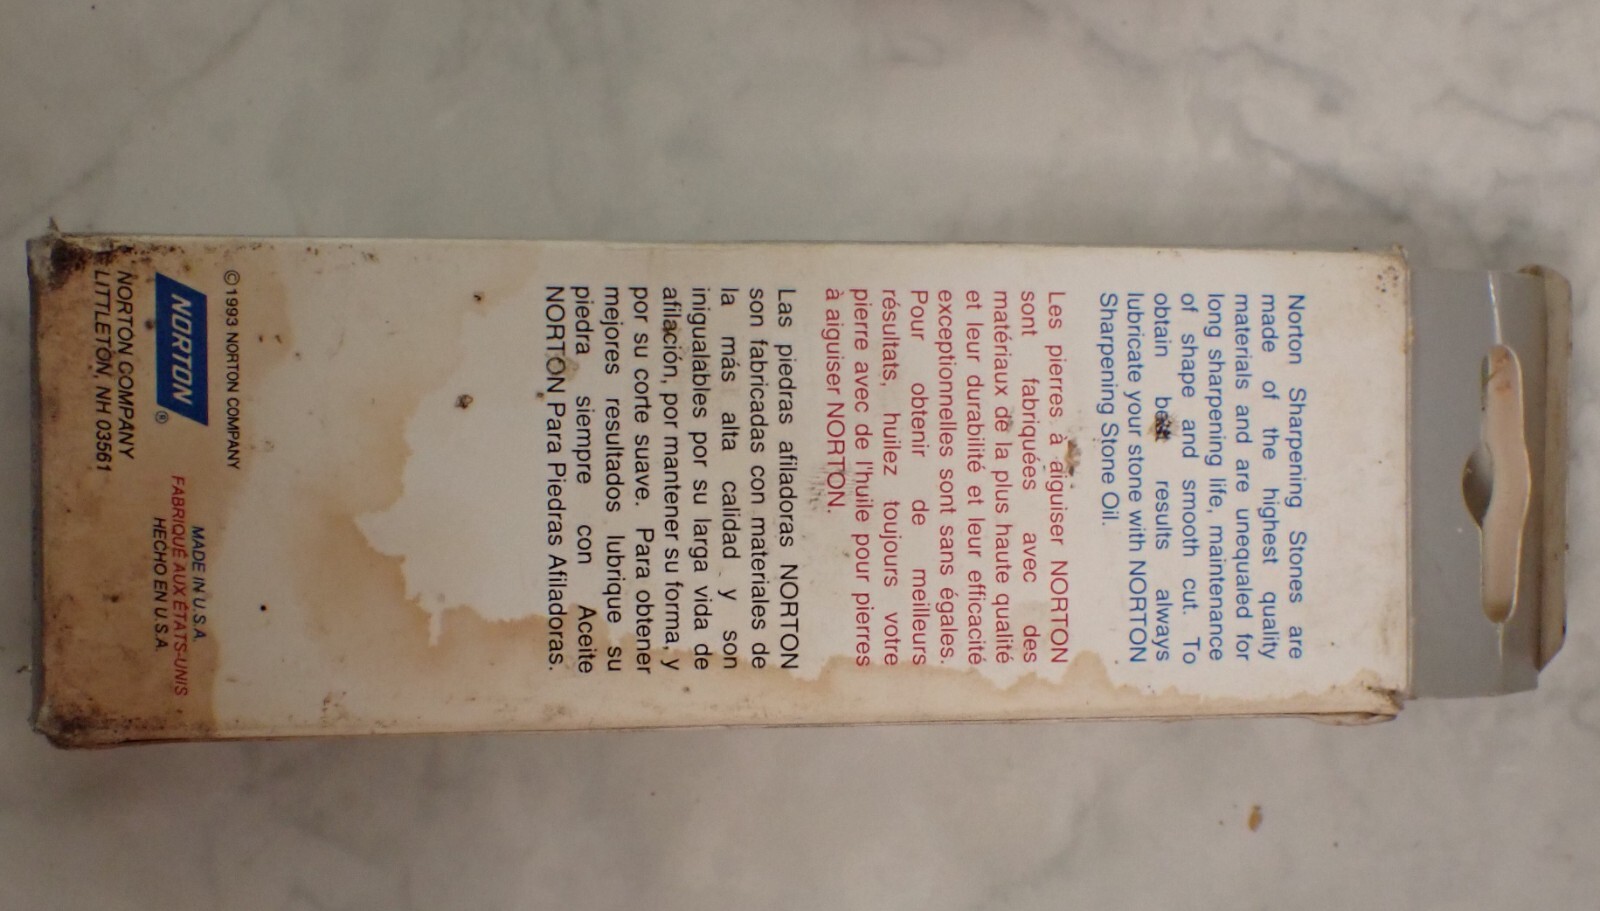 Norton Sharpening Stones are
made of the highest quality
materials and are unequaled for
long sharpening life, maintenance
of shape and smooth cut. To
obtain best results always
lubricate your stone with NORTON
Sharpening Stone Oil.
Les pierres à aiguiser NORTON
sont fabriquées avec des
matériaux de la plus haute qualité
et leur durabilité et leur efficacité
exceptionnelles sont sans égales.
Pour obtenir de meilleurs
résultats, huilez toujours votre
pierre avec de l'huile pour pierres
à aiguiser NORTON.
Las piedras afiladoras NORTON
son fabricadas con materiales de
la más alta calidad y son
inigualables por su larga vida de
afilación, por mantener su forma, y
por su corte suave. Para obtener
mejores resultados lubrique su
piedra siempre con Aceite
NORTON Para Piedras Afiladoras.
©1993 NORTON COMPANY
NORTON®
NORTON COMPANY
LITTLETON, NH 03561
MADE IN U.S.A.
FABRIQUÉ AUX ÉTATS-UNIS
HECHO EN U.S.A.